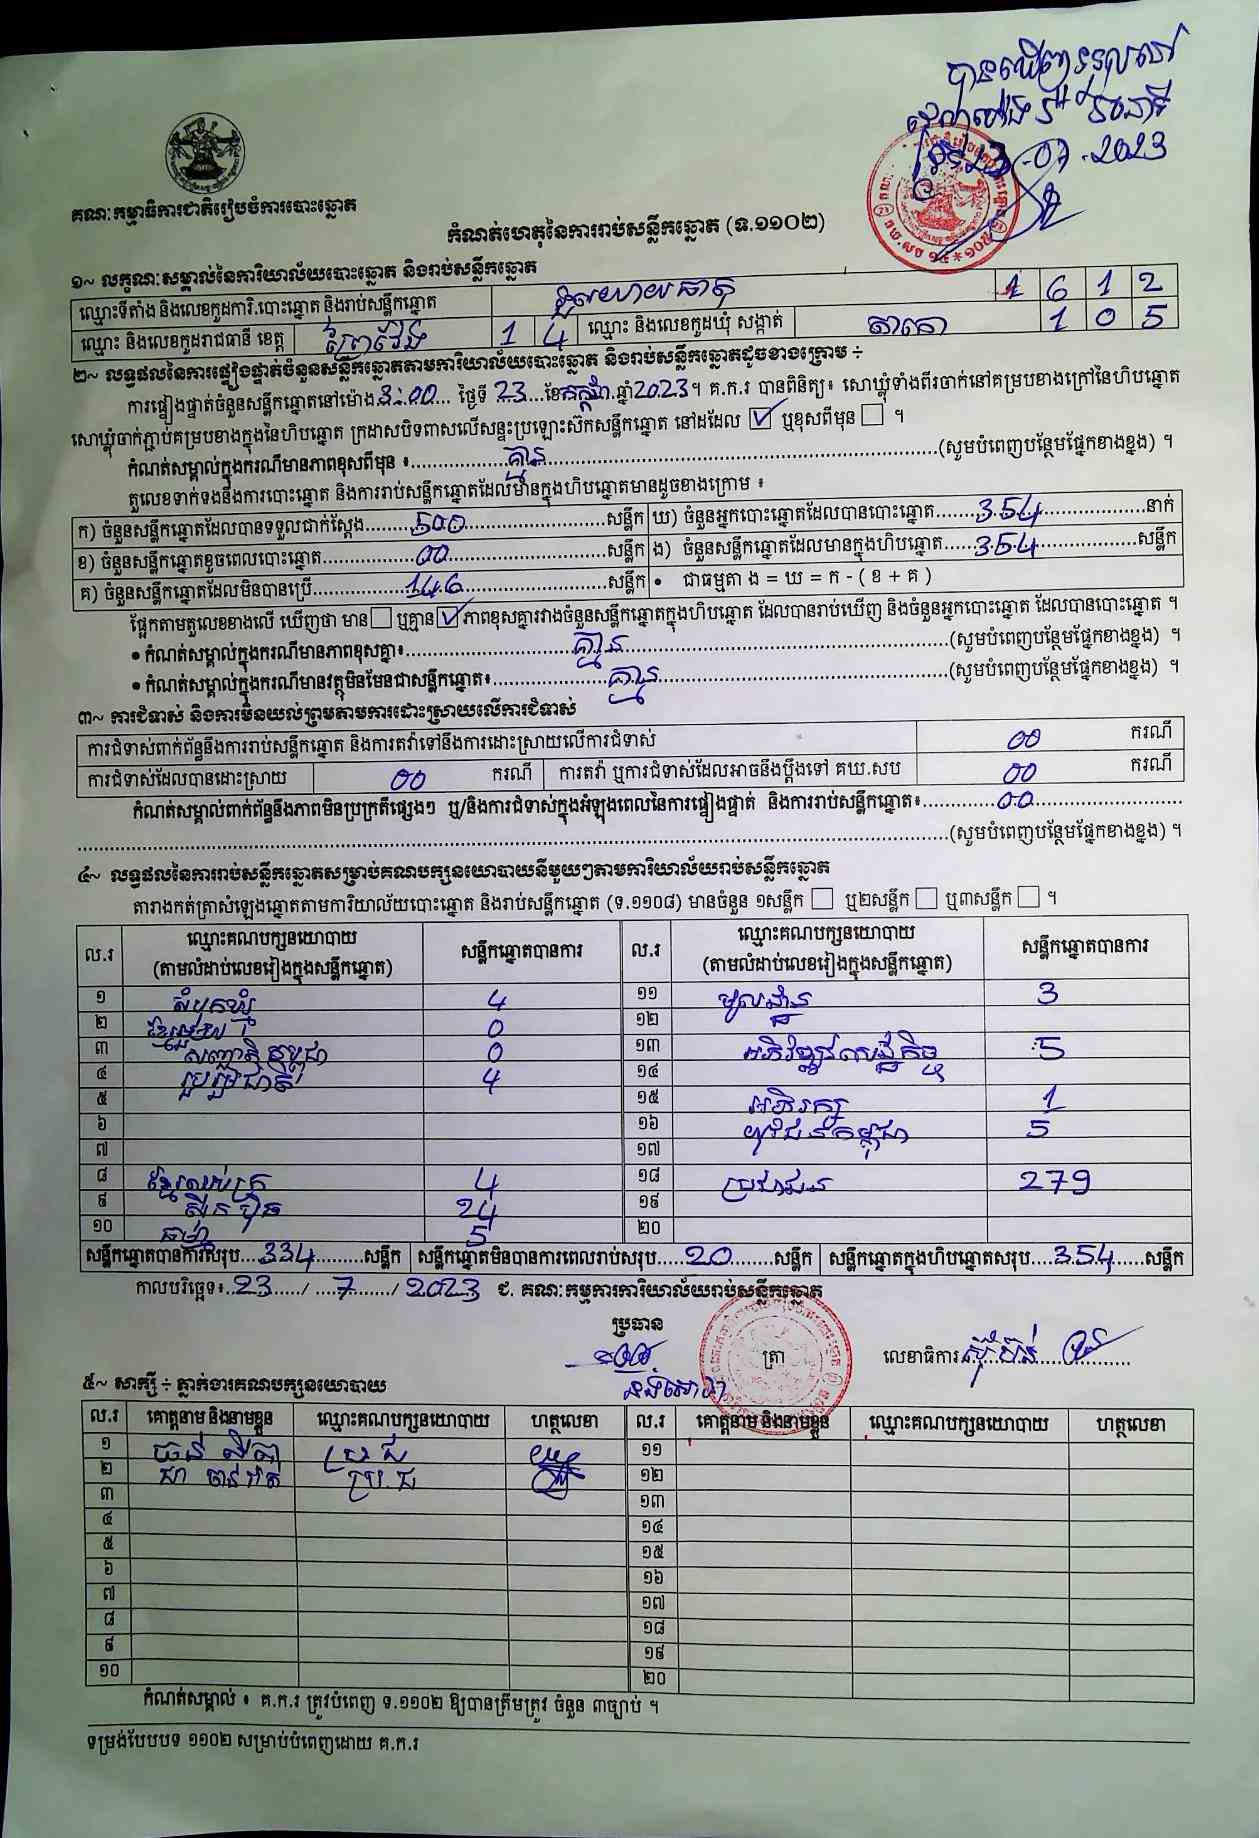 បានឃើញ
23-07-2023
គណៈកម្មាធិការជាតិរៀបចំការបោះឆ្នោត
កំណត់ហេតុនៃការរាប់សន្លឹកឆ្នោត (ទ.១១០២)
១~ លក្ខណៈសម្គាល់នៃការិយាល័យបោះឆ្នោត និងរាប់សន្លឹកឆ្នោត
ឈ្មោះទីតាំង និងលេខកូដការិ.បោះឆ្នោត និងរាប់សន្លឹកឆ្នោត 1 6 1 2
ឈ្មោះ និងលេខកូដរាជធានី ខេត្ត ព្រៃវែង 1 4 ឈ្មោះ និងលេខកូដឃុំ សង្កាត់ តាកោ 1 0 5
២~ លទ្ធផលនៃការផ្ទៀងផ្ទាត់ចំនួនសន្លឹកឆ្នោតតាមការិយាល័យបោះឆ្នោត និងរាប់សន្លឹកឆ្នោតដូចខាងក្រោម ÷
ការផ្ទៀងផ្ទាត់ចំនួនសន្លឹកឆ្នោតនៅម៉ោង 3:00 ថ្ងៃទី 23 ខែ កក្កដា ឆ្នាំ 2023 ។ គ.ក.រ បានពិនិត្យ៖ សោឃ្លុំទាំងពីរចាក់នៅគម្របខាងក្រៅនៃហិបឆ្នោត
សោឃ្លុំចាក់ភ្ជាប់គម្របខាងក្នុងនៃហិបឆ្នោត ក្រដាសបិទពាសលើសន្ទះប្រឡោះស៊កសន្លឹកឆ្នោត នៅដដែល ☑ ឬខុសពីមុន ☐ ។
កំណត់សម្គាល់ក្នុងករណីមានភាពខុសពីមុន ៖ គ្មាន (សូមបំពេញបន្ថែមផ្នែកខាងខ្នង) ។
តួលេខទាក់ទងនឹងការបោះឆ្នោត និងការរាប់សន្លឹកឆ្នោតដែលមានក្នុងហិបឆ្នោតមានដូចខាងក្រោម ៖
ក) ចំនួនសន្លឹកឆ្នោតដែលបានទទួលជាក់ស្តែង 500 សន្លឹក ឃ) ចំនួនអ្នកបោះឆ្នោតដែលបានបោះឆ្នោត 354 នាក់
ខ) ចំនួនសន្លឹកឆ្នោតខូចពេលបោះឆ្នោត 00 សន្លឹក ង) ចំនួនសន្លឹកឆ្នោតដែលមានក្នុងហិបឆ្នោត 354 សន្លឹក
គ) ចំនួនសន្លឹកឆ្នោតដែលមិនបានប្រើ 146 សន្លឹក • ជាធម្មតា ង = ឃ = ក - ( ខ + គ )
ផ្អែកតាមតួលេខខាងលើ ឃើញថា មាន ☐ ឬគ្មាន ☑ ភាពខុសគ្នារវាងចំនួនសន្លឹកឆ្នោតក្នុងហិបឆ្នោត ដែលបានរាប់ឃើញ និងចំនួនអ្នកបោះឆ្នោត ដែលបានបោះឆ្នោត ។
• កំណត់សម្គាល់ក្នុងករណីមានភាពខុសគ្នា៖ គ្មាន (សូមបំពេញបន្ថែមផ្នែកខាងខ្នង) ។
• កំណត់សម្គាល់ក្នុងករណីមានវត្ថុមិនមែនជាសន្លឹកឆ្នោត៖ គ្មាន (សូមបំពេញបន្ថែមផ្នែកខាងខ្នង) ។
៣~ ការជំទាស់ និងការមិនយល់ព្រមតាមការដោះស្រាយលើការជំទាស់
ការជំទាស់ពាក់ព័ន្ធនឹងការរាប់សន្លឹកឆ្នោត និងការតវ៉ាទៅនឹងការដោះស្រាយលើការជំទាស់ 00 ករណី
ការជំទាស់ដែលបានដោះស្រាយ 00 ករណី ការតវ៉ា ឬការជំទាស់ដែលអាចនឹងប្តឹងទៅ គឃ.សប 00 ករណី
កំណត់សម្គាល់ពាក់ព័ន្ធនឹងភាពមិនប្រក្រតីផ្សេងៗ ឬ/និងការជំទាស់ក្នុងអំឡុងពេលនៃការផ្ទៀងផ្ទាត់ និងការរាប់សន្លឹកឆ្នោត៖ 00
(សូមបំពេញបន្ថែមផ្នែកខាងខ្នង) ។
៤~ លទ្ធផលនៃការរាប់សន្លឹកឆ្នោតសម្រាប់គណបក្សនយោបាយនីមួយៗតាមការិយាល័យរាប់សន្លឹកឆ្នោត
តារាងកត់ត្រាសំឡេងឆ្នោតតាមការិយាល័យបោះឆ្នោត និងរាប់សន្លឹកឆ្នោត (ទ.១១០៨) មានចំនួន ១សន្លឹក ☐ ឬ២សន្លឹក ☐ ឬ៣សន្លឹក ☐ ។
ល.រ ឈ្មោះគណបក្សនយោបាយ (តាមលំដាប់លេខរៀងក្នុងសន្លឹកឆ្នោត) សន្លឹកឆ្នោតបានការ ល.រ ឈ្មោះគណបក្សនយោបាយ (តាមលំដាប់លេខរៀងក្នុងសន្លឹកឆ្នោត) សន្លឹកឆ្នោតបានការ
១ សំបុកឃ្មុំ 4 ១១ មូលដ្ឋាន 3
២ 0 ១២
៣ សញ្ជាតិកម្ពុជា 0 ១៣ 5
៤ 4 ១៤
៥ ១៥ 1
៦ ១៦ យុវជនកម្ពុជា 5
៧ ១៧
៨ ខ្មែរឈប់ក្រ 4 ១៨ ប្រជាជន 279
៩ 24 ១៩
១០ 5 ២០
សន្លឹកឆ្នោតបានការសរុប 334 សន្លឹក សន្លឹកឆ្នោតមិនបានការពេលរាប់សរុប 20 សន្លឹក សន្លឹកឆ្នោតក្នុងហិបឆ្នោតសរុប 354 សន្លឹក
កាលបរិច្ឆេទ៖ 23 / 7 / 2023 ជ. គណៈកម្មការការិយាល័យរាប់សន្លឹកឆ្នោត
ប្រធាន
ត្រា លេខាធិការ
៥~ សាក្សី ÷ ភ្នាក់ងារគណបក្សនយោបាយ
ល.រ គោត្តនាម និងនាមខ្លួន ឈ្មោះគណបក្សនយោបាយ ហត្ថលេខា ល.រ គោត្តនាម និងនាមខ្លួន ឈ្មោះគណបក្សនយោបាយ ហត្ថលេខា
១ ប្រ.ជ ១១
២ ប្រ.ជ ១២
៣ ១៣
៤ ១៤
៥ ១៥
៦ ១៦
៧ ១៧
៨ ១៨
៩ ១៩
១០ ២០
កំណត់សម្គាល់ ៖ គ.ក.រ ត្រូវបំពេញ ទ.១១០២ ឱ្យបានត្រឹមត្រូវ ចំនួន ៣ច្បាប់ ។
ទម្រង់បែបបទ ១១០២ សម្រាប់បំពេញដោយ គ.ក.រ